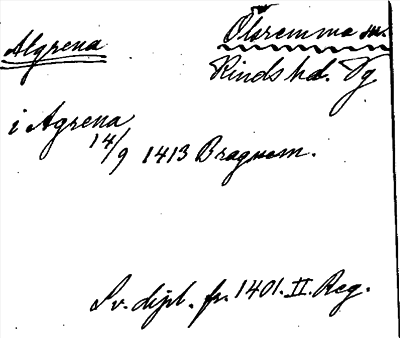 Algrena
Ölsremma sn.
Kinds hd. Vg
i Agrena
14/9 1413 Bragnem.
Sv. dipl. fr. 1401. II. Reg.